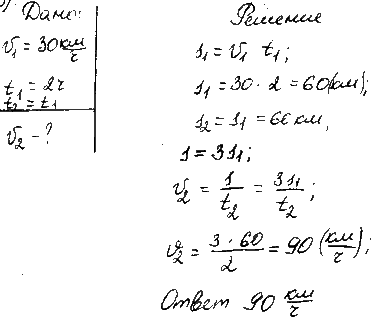 Дано:
v₁ = 30 км/ч
t₁ = 2ч
t₂ = t₁
v₂ - ?
Решение
s₁ = v₁ t₁;
s₁ = 30 · 2 = 60(км);
s₂ = s₁ = 66 км,
s = 3s₁;
v₂ = s/t₂ = 3s₁/t₂;
v₂ = 3 · 60/2 = 90 (км/ч);
Ответ 90 км/ч